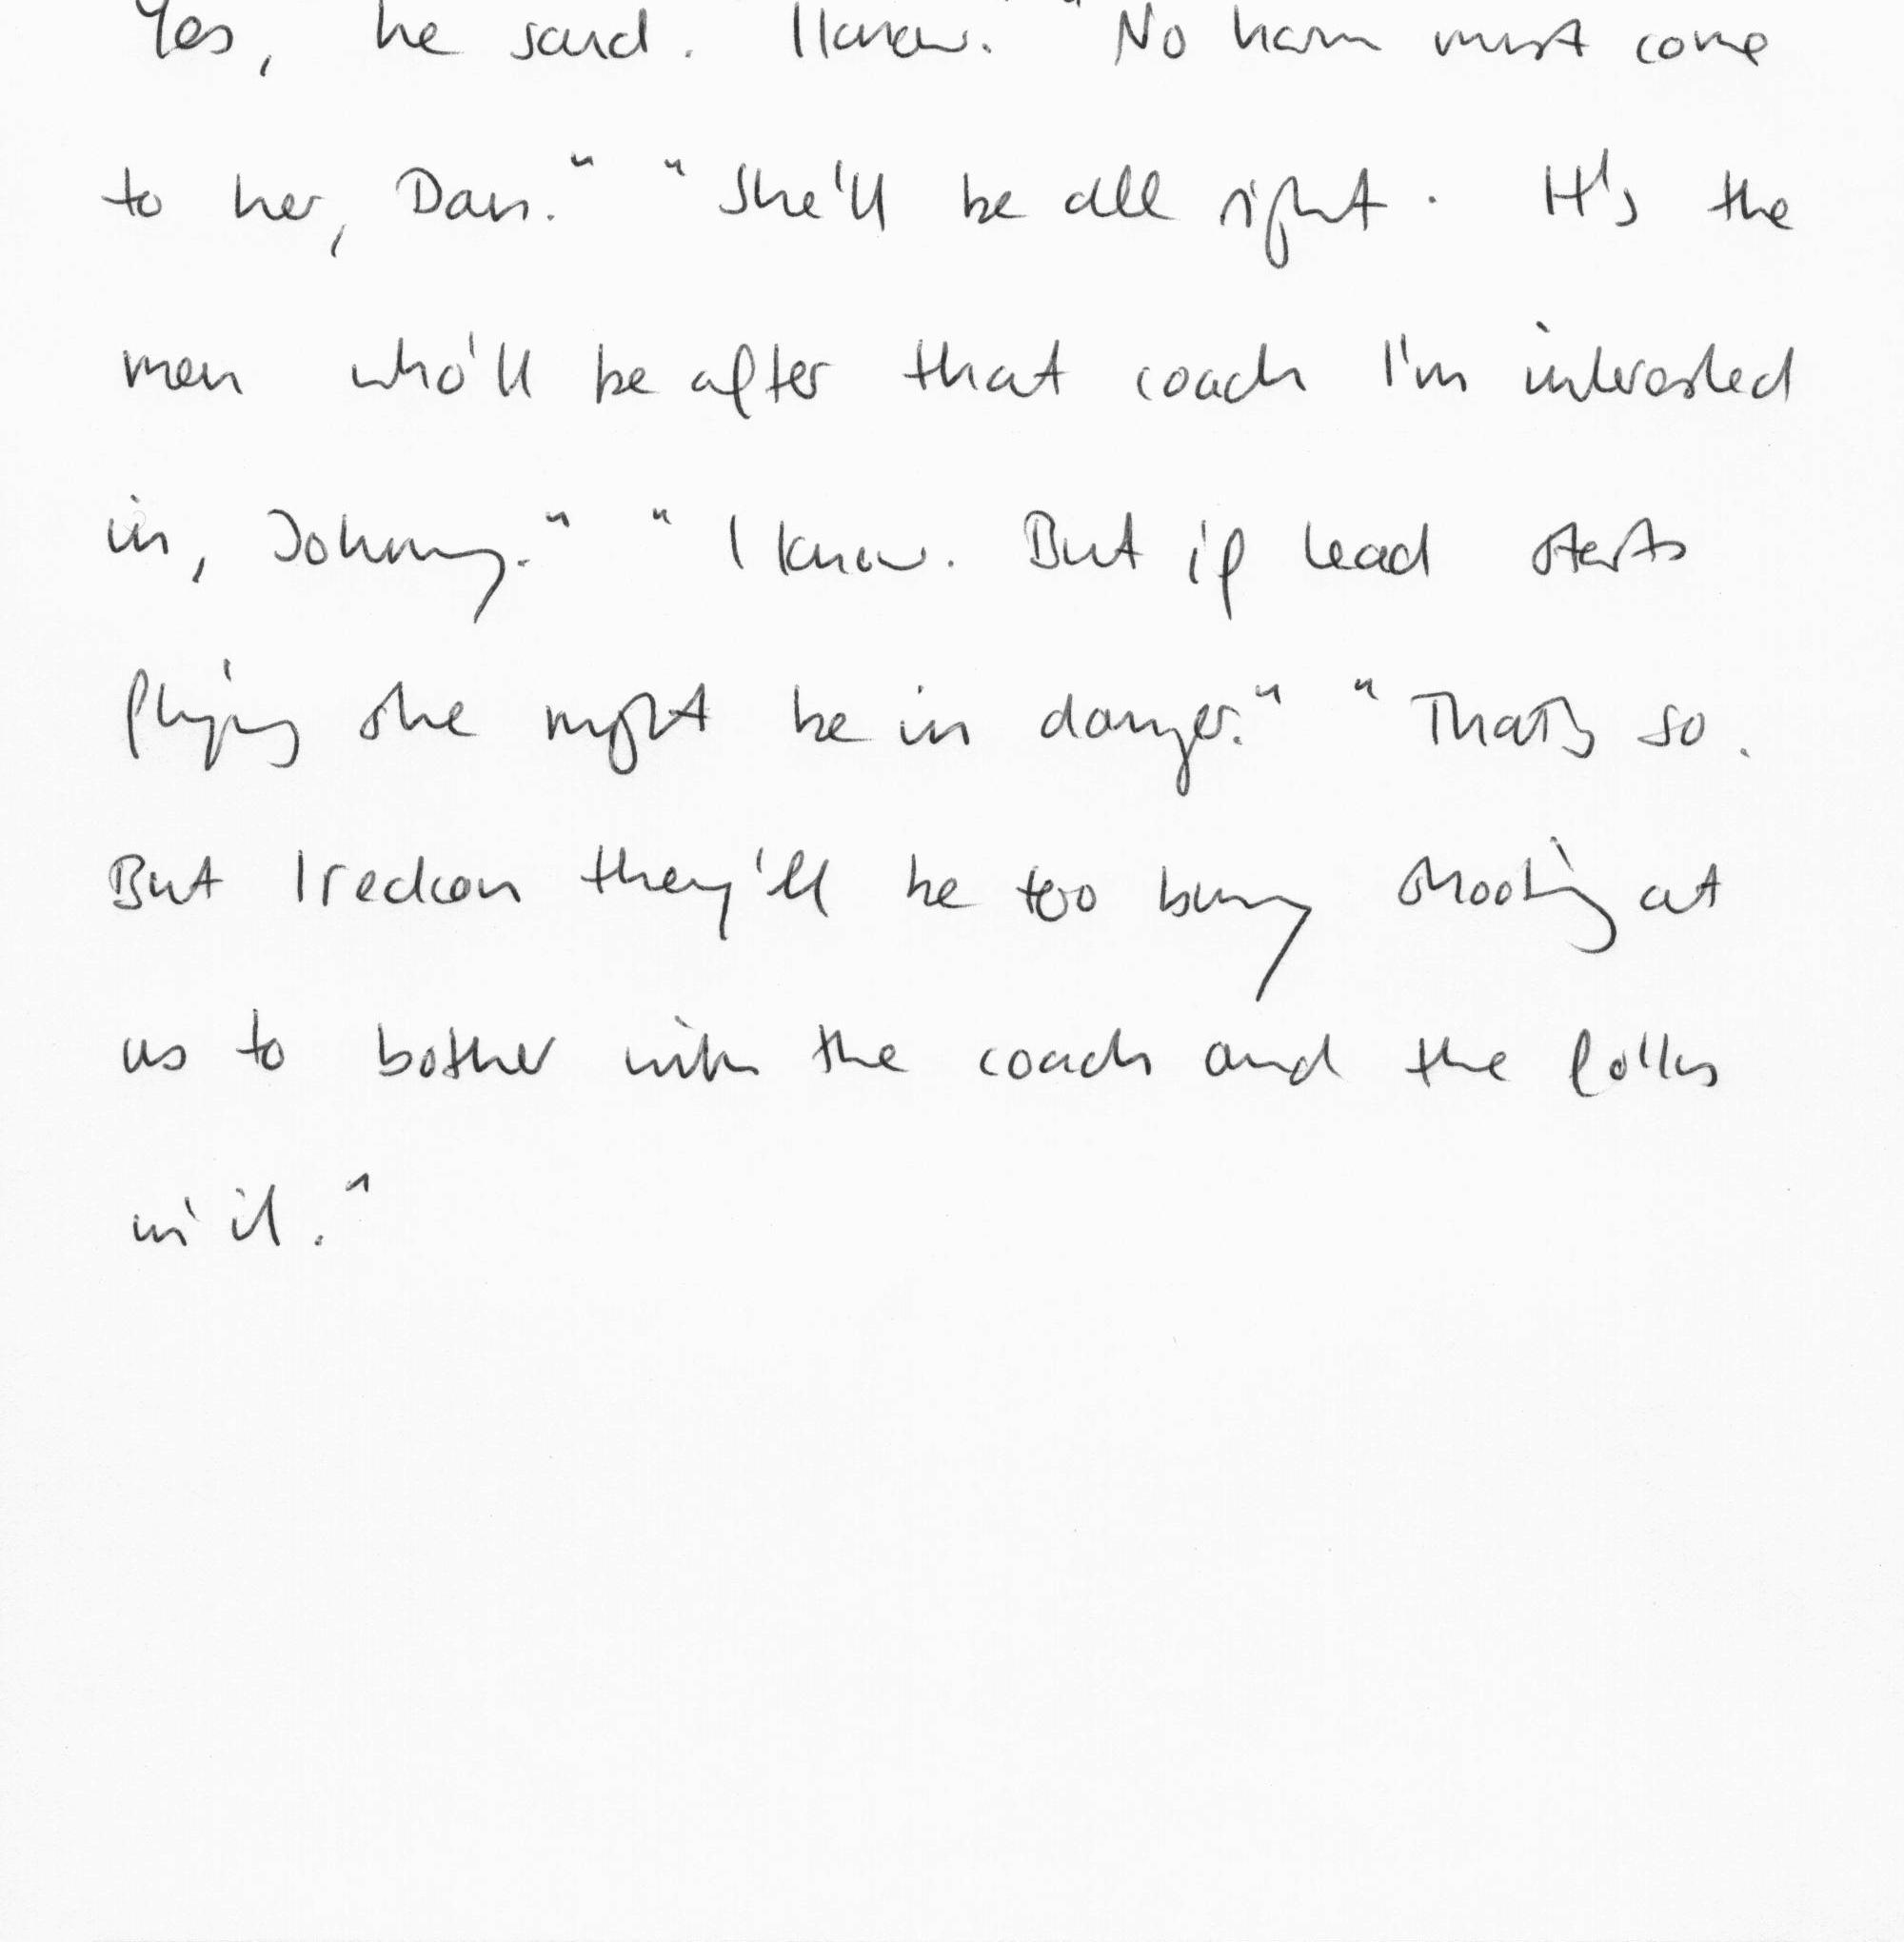 Yes, he said. I know." "No harm must come
to her, Dan." "She'll be all right. It's the
men who'll be after that coach I'm interested
in, Johnny." "I know. But if lead starts
flying she might be in danger." "That's so.
But I reckon they'll be too busy shooting at
us to bother with the coach and the folks
in it."